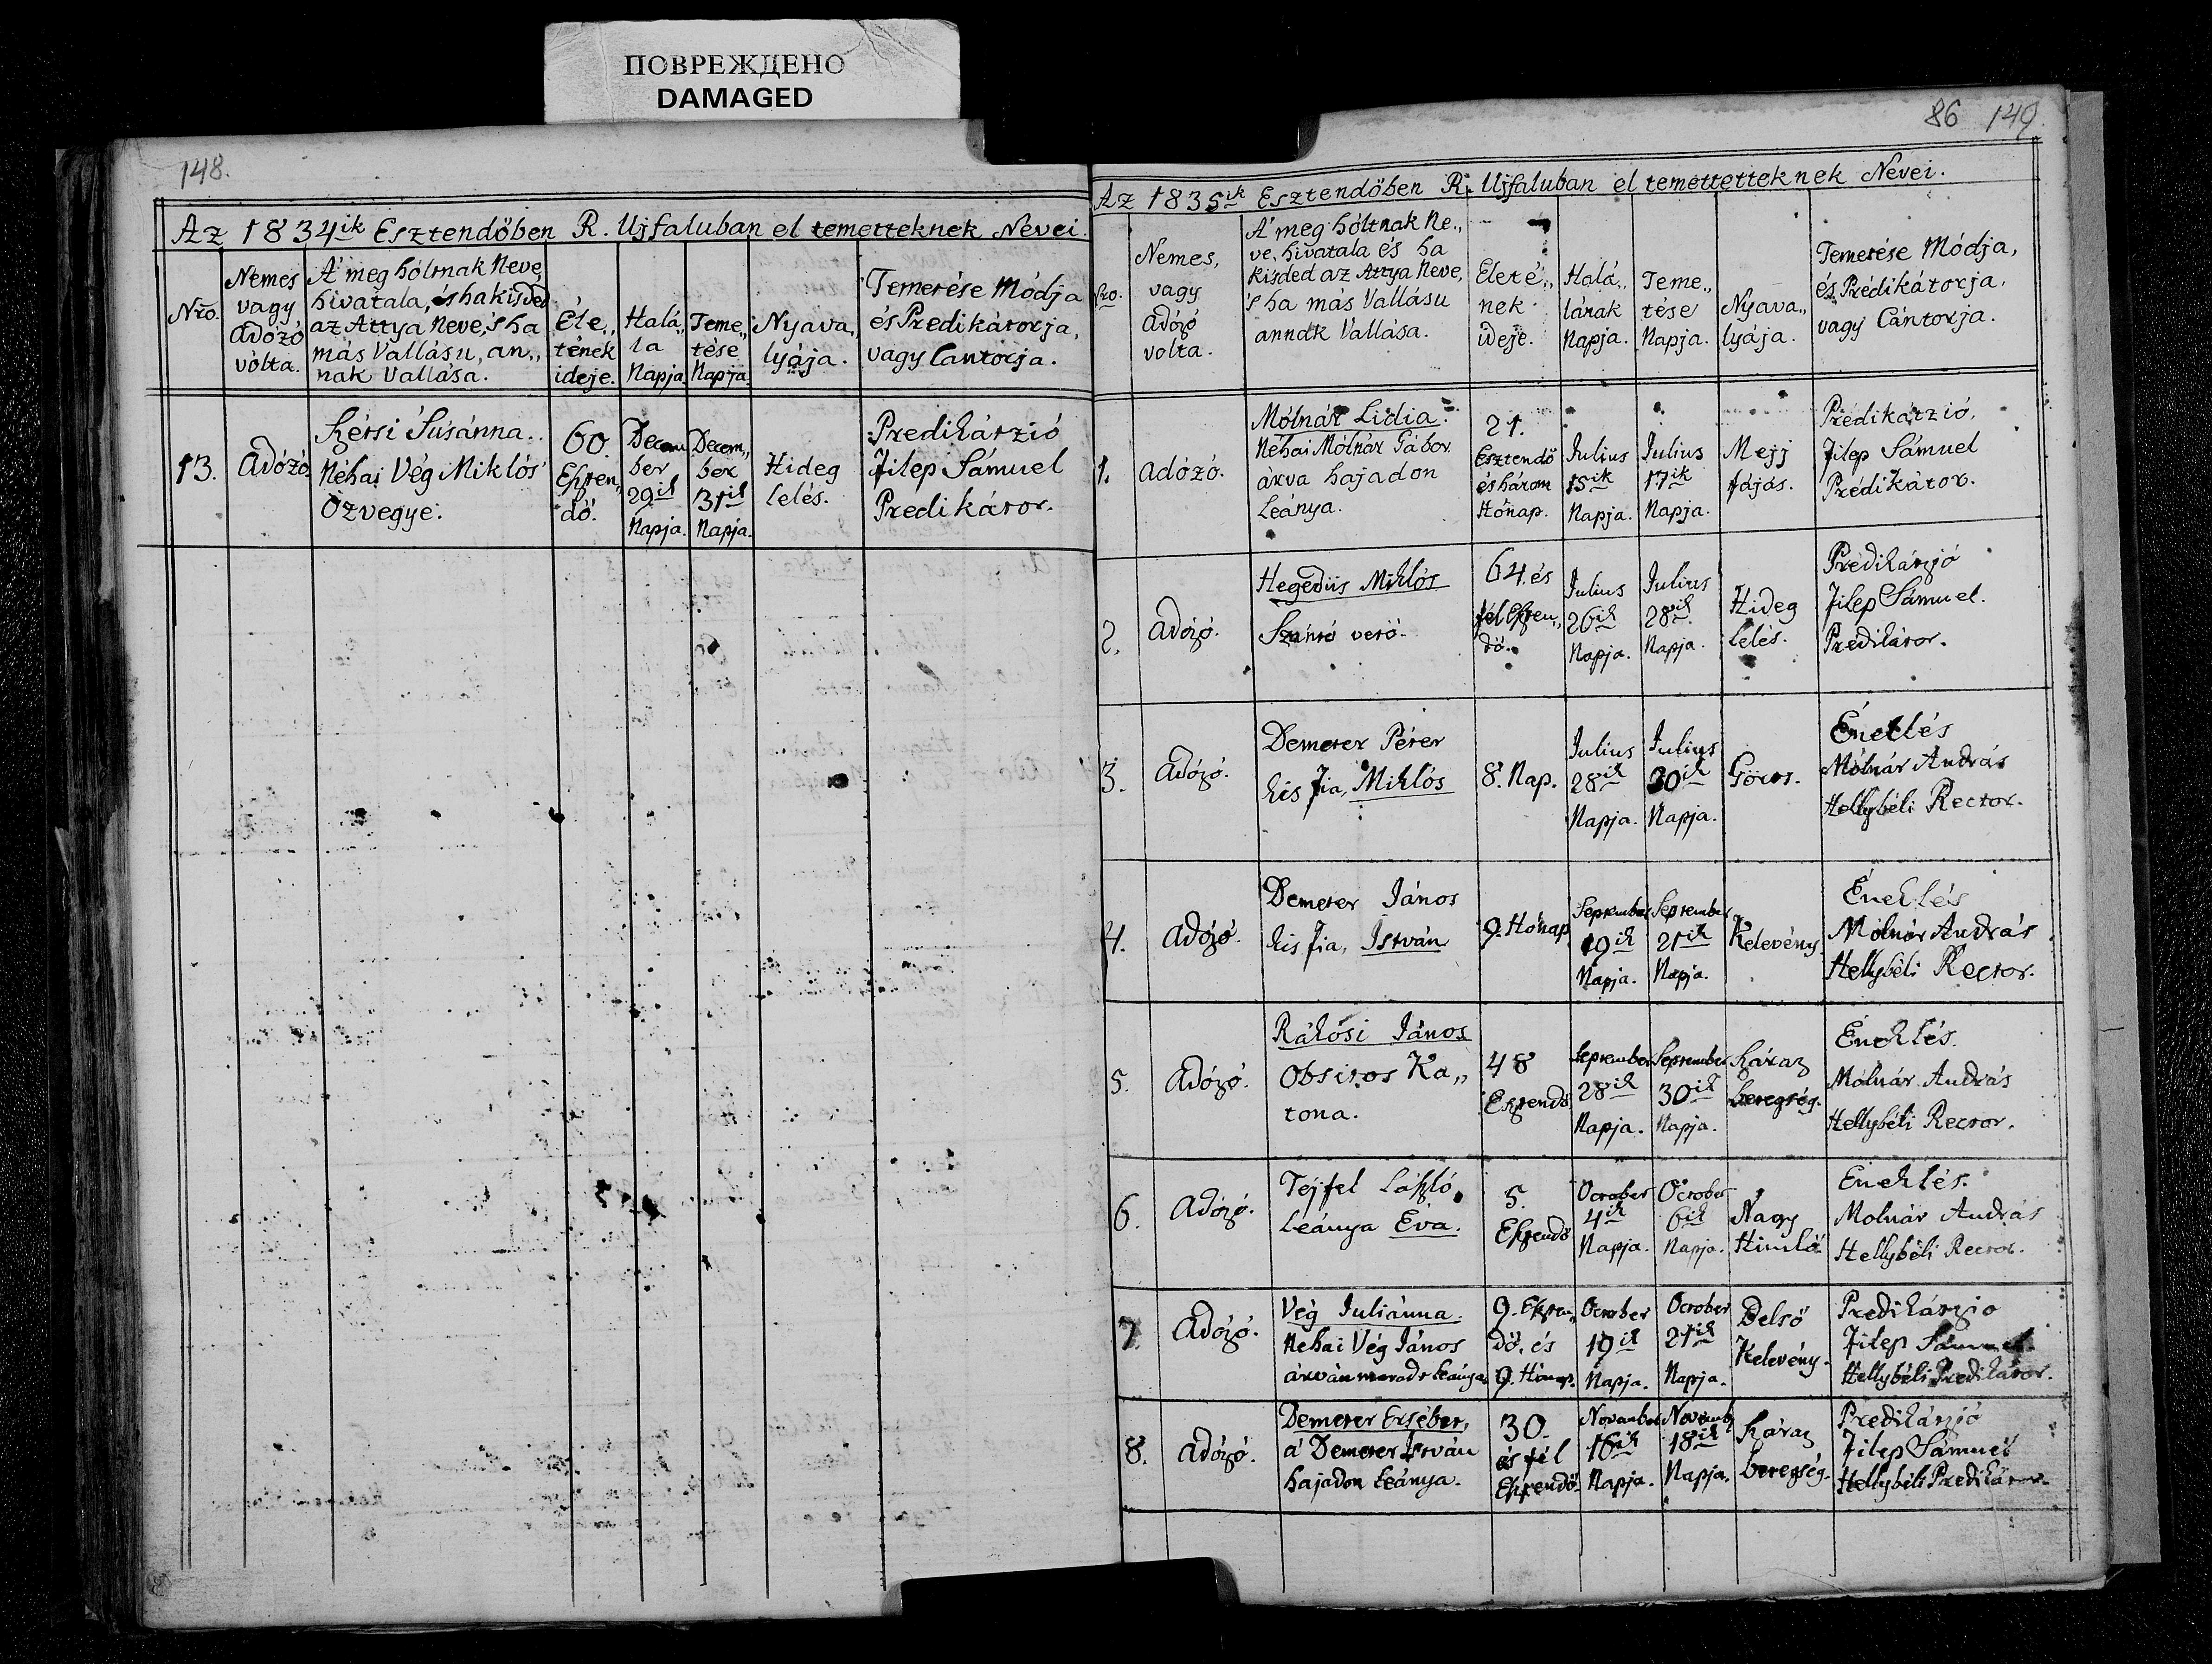 ПОВРЕЖДЕНО
DAMAGED
148.
Az 1834ik Esztendőben R. Ujfaluban el temetteknek Nevei.
Nro.
Nemes
vagy
Adózó
vólta.
A' meg hóltnak Neve,
hivatala, és ha kisded
az Attya Neve, 's ha
más Vallásu, an„
nak Vallása.
Éle„
tének
ideje.
Halá„
la
Napja.
Teme„
tése
Napja
Nyava„
lyája.
Temetése Módja
és Predikátorja,
vagy Cantorja.
13.
Adózó
Kérsi Susánna.
Néhai Vég Miklós
Özvegye.
60.
Eszten„
dő.
Decem
ber
29ik
Napja.
Decem„
ber
31ik
Napja.
Hideg
lelés.
Predikátzió
Filep Sámuel
Predikátor.
86 149.
Az 1835ik Esztendőben R. Ujfaluban el temettetteknek Nevei.
Nro.
Nemes,
vagy
Adózó
volta.
A' meg hóltnak Ne„
ve, hivatala és ha
kisded az Attya Neve,
's ha más Vallásu
annak Vallása.
Eleté„
nek
ideje.
Halá„
lának
Napja.
Teme„
tése
Napja.
Nyava„
lyája.
Temetése Módja,
és Prédikátorja,
vagy Cántorja.
1.
Adózó.
Mólnár Lidia.
Néhai Mólnár Gábor
árva hajadon
Leánya.
21.
Esztendő
és három
Hónap.
Julius
15ik
Napja.
Julius
17ik
Napja.
Mejj
fájás.
Prédikátzió,
Filep Sámuel
Prédikátor.
2.
Adózó.
Hegedüs Miklós
Szántó vető.
64. és
fél Eszten„
dő.
Julius
26ik
Napja.
Julius
28ik
Napja.
Hideg
lelés.
Prédikátzió
Filep Sámuel.
Predikátor.
3.
Adózó.
Demeter Péter
kis fia, Miklós
8. Nap.
Julius
28ik
Napja.
Julius
30ik
Napja.
Görts.
Éneklés
Mólnár András
Hellybéli Rector.
4.
Adózó.
Demeter János
kis fia, István
9. Hónap
September
19ik
Napja.
September
21ik
Napja.
Kelevény.
Éneklés
Mólnár András
Hellybéli Rector.
5.
Adózó.
Rákósi János
Obsitos Ka„
tona.
48
Esztendő
September
28ik
Napja.
September
30ik
Napja.
Száraz
betegség.
Éneklés.
Mólnár András
Hellybéli Rector.
6.
Adózó.
Tejfel László
Leánya Éva.
5.
Esztendő
October
4ik
Napja.
October
6ik
Napja.
Nagy
Himlő.
Éneklés.
Molnár András
Hellybéli Rector.
7.
Adózó.
Vég Juliánna.
Nehai Vég János
árván maradt Leánya
9. Eszten„
dő, és
9. Hónap.
October
19ik
Napja.
October
21ik
Napja.
Belső
Kelevény.
Predikátzio
Filep Sámuel
Hellybéli Predikátor.
8.
Adózó.
Demeter Ersébet,
a' Demeter István
hajadon Leánya.
30.
és fél
Esztendő.
November
16ik
Napja.
Novemb
18ik
Napja.
Száraz
betegség.
Predikátzió
Filep Sámuel
Hellybéli Predikátor.